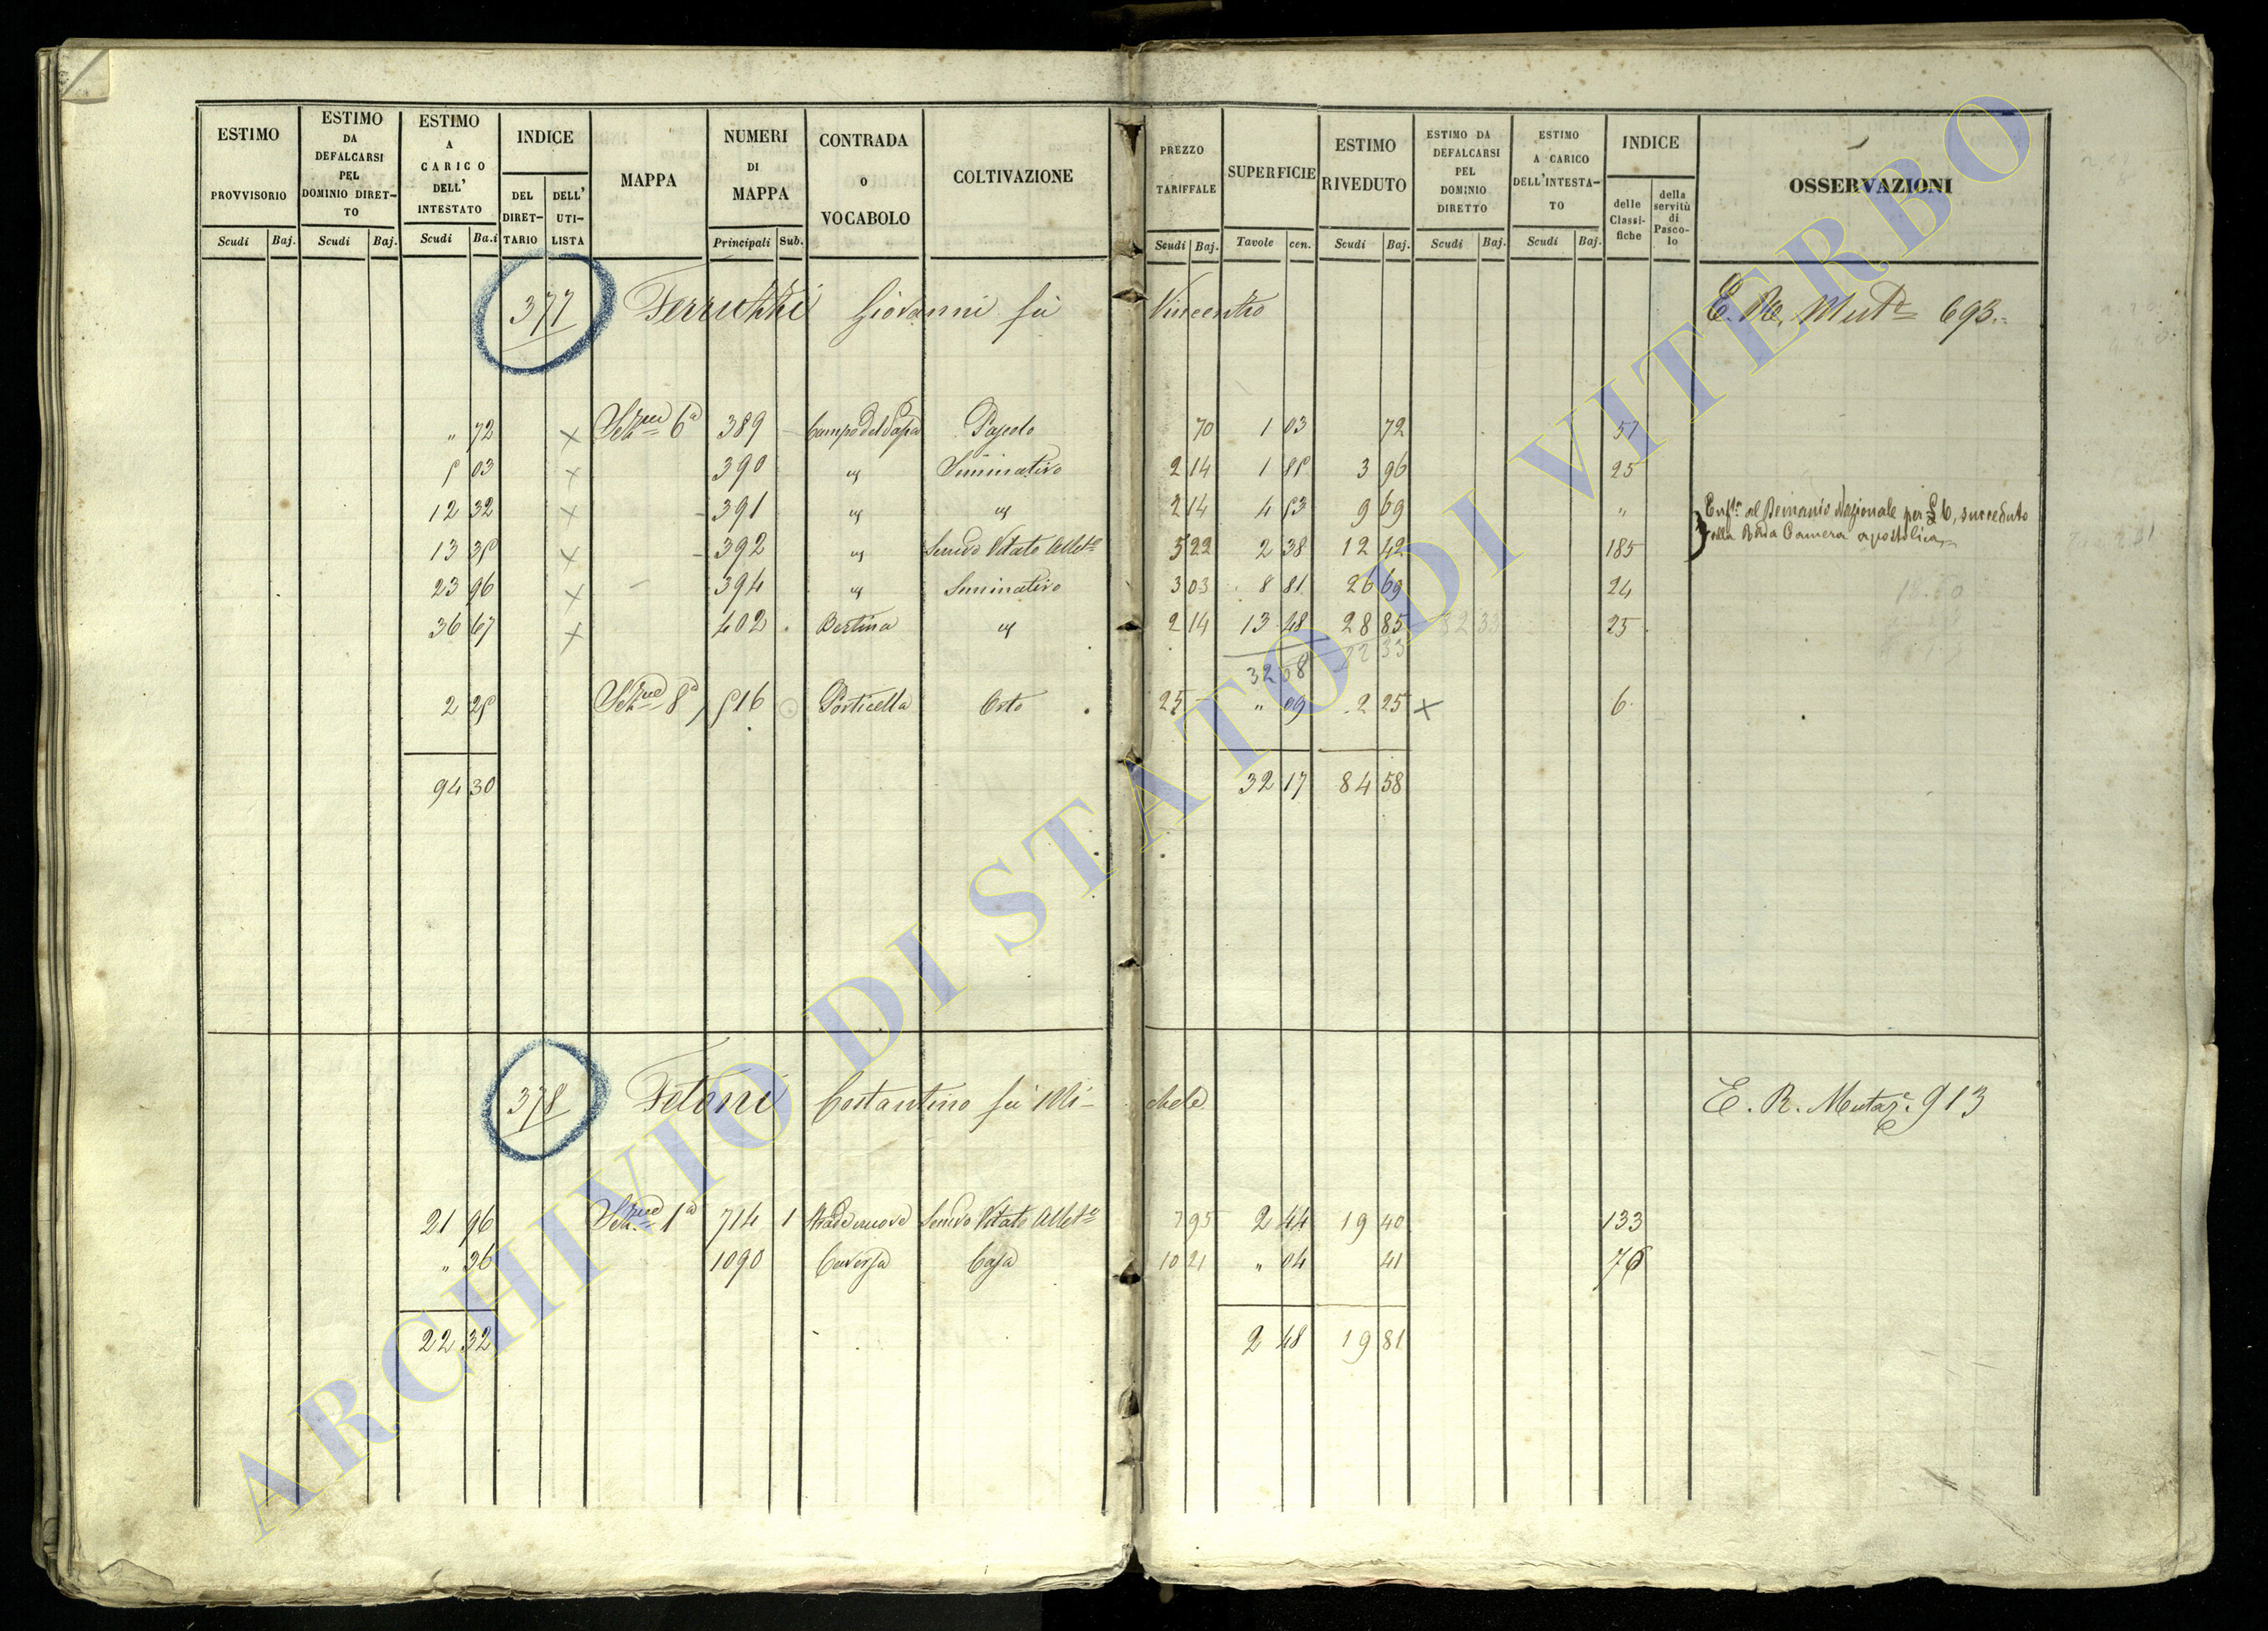 ESTIMO PROVVISORIO
Scudi Baj.
ESTIMO DA DEFALCARSI PEL DOMINIO DIRET-TO
Scudi Baj.
ESTIMO A CARICO DELL' INTESTATO
Scudi Ba.i
INDICE
DEL DIRET-TARIO
DELL' UTI-LISTA
MAPPA
NUMERI DI MAPPA
Principali Sub.
CONTRADA O VOCABOLO
COLTIVAZIONE
PREZZO TARIFFALE
Scudi Baj.
SUPERFICIE
Tavole cen.
ESTIMO RIVEDUTO
Scudi Baj.
ESTIMO DA DEFALCARSI PEL DOMINIO DIRETTO
Scudi Baj.
ESTIMO A CARICO DELL'INTESTA-TO
Scudi Baj.
INDICE
delle Classi-fiche
della servitù di Pasco-lo
OSSERVAZIONI
377 Ferruzzi Giovanni fù Vincenzo E. R. Mut.e 693.
" 72 x Sez.ne 6a 389 Campo del Papa Pascolo 70 1 03 72 57
5 03 x 390 " Seminativo 2 14 1 85 3 96 25
12 32 x 391 " " 2 14 4 53 9 69 "
Enft.a al Demanio Nazionale per £ 6, succeduto
alla Rda Camera apostolica
13 35 x 392 " Semivo Vitato Allto 5 22 2 38 12 42 185
23 96 x 394 " Seminativo 3 03 8 81 26 69 24
36 67 x 402 Bertina " 2 14 13 48 28 85 82 33 25
32 08
2 25 Sez.ne 8a 516 Porticella Orto 25 - " 09 2 25 x 6
94 30 32 17 84 58
378 Fetoni Costantino fù Mi-chele E. R. Mutaz.e 913
21 96 Sez.ne 1a 714 1 Strade nuove Semivo Vitato Allto 7 95 2 44 19 40 133
" 36 1090 Casa 10 21 " 04 41 76
22 32 2 48 19 81
ARCHIVIO DI STATO DI VITERBO